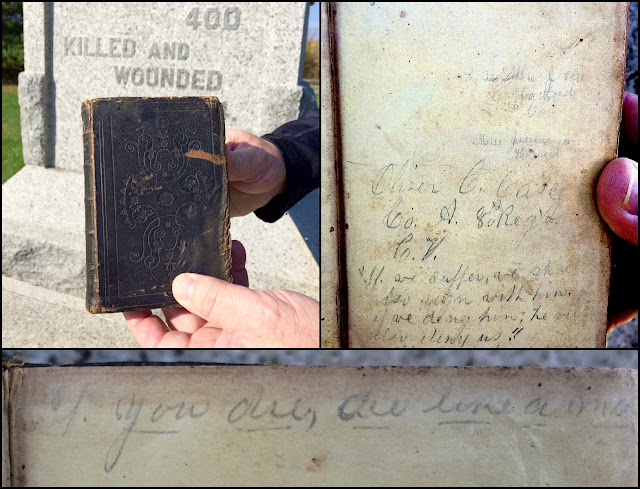 400
KILLED AND
WOUNDED
Oliver C. Case
Co. A. 8th Reg't
C. V.
"If we suffer, we sh
also reign with him.
if we deny him; he wi
also deny us."
If you die, die like a ma